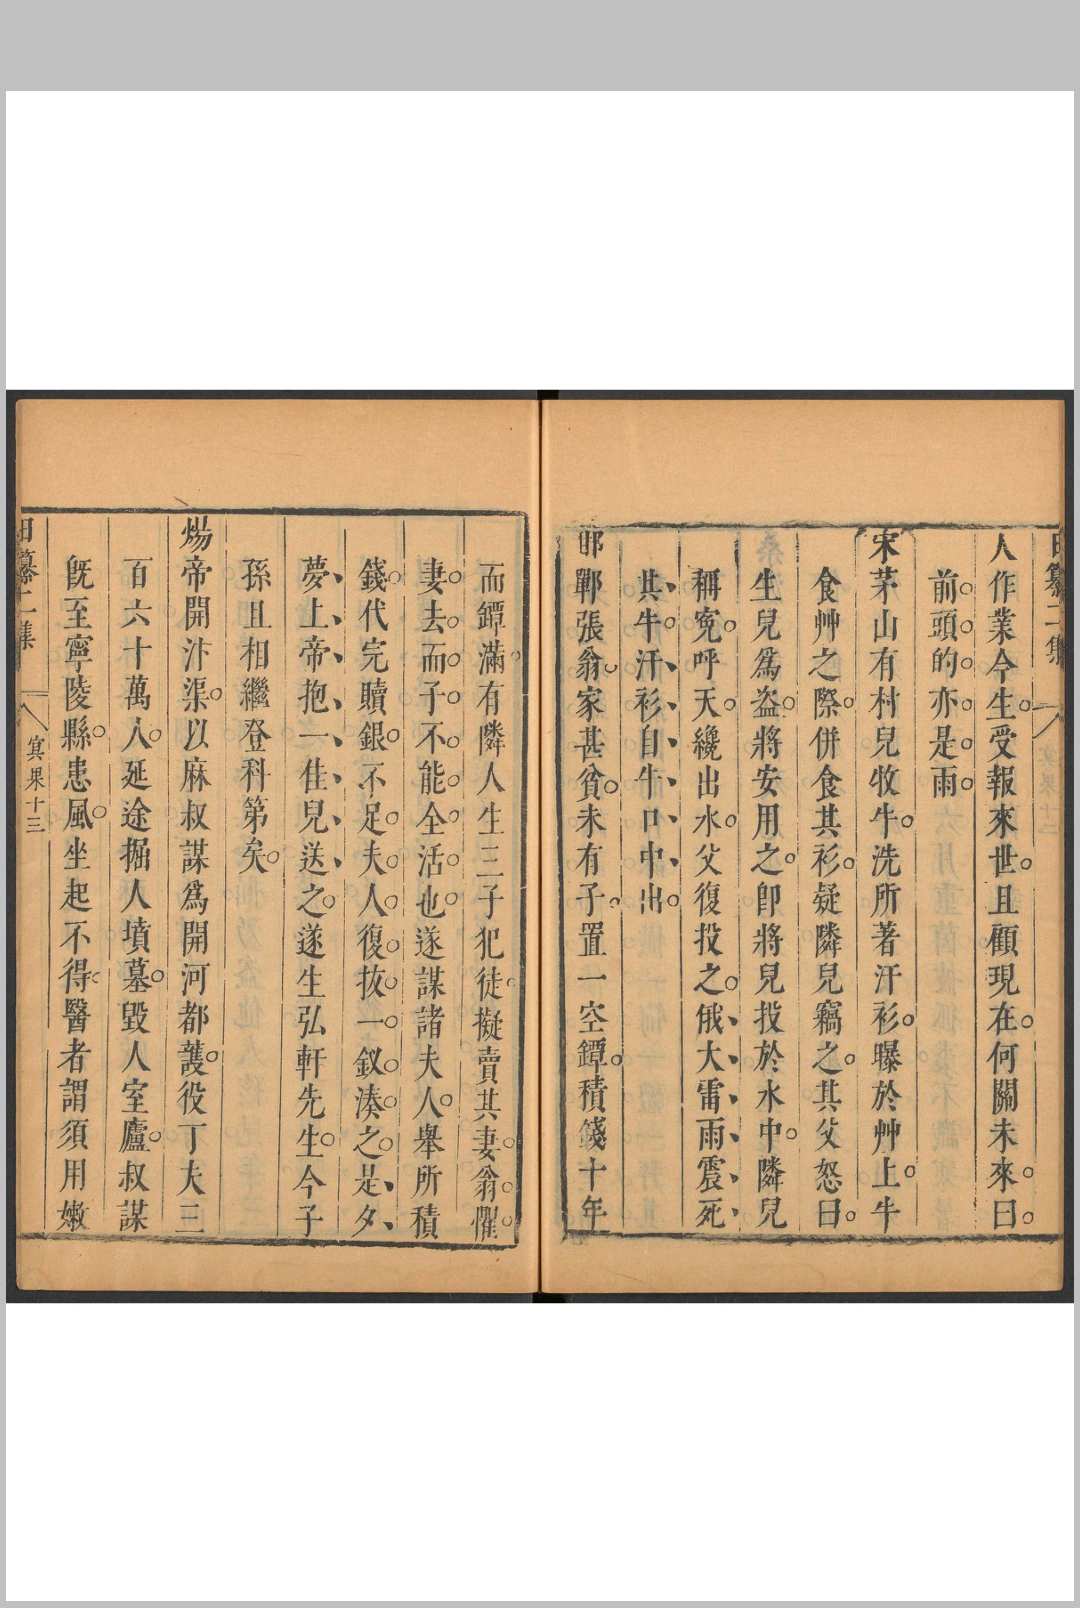 人作業今生受報來世且顧現在何關未來曰
前頭的亦是雨
宋茅山有村兒牧牛洗所著汗衫曝於艸上牛
食艸之際併食其衫疑隣兒竊之其父怒曰
生兒爲盜將安用之卽將兒投於水中隣兒
稱寃呼天纔出水父復投之俄大雷雨震死
其牛汗衫自牛口中出
邯鄲張翁家甚貧未有子置一空鐔積錢十年
而鐔滿有隣人生三子犯徒擬賣其妻翁懼
妻去而子不能全活也遂謀諸夫人舉所積
錢代完贖銀不足夫人復抜一釵湊之是夕
夢上帝抱一佳兒送之遂生弘軒先生今子
孫且相繼登科第矣
煬帝開汴渠以麻叔謀爲開河都護役丁夫三
百六十萬人延途掘人墳墓毀人室廬叔謀
旣至寧陵縣患風坐起不得醫者謂須用嫩
日纂二集 冥果十三